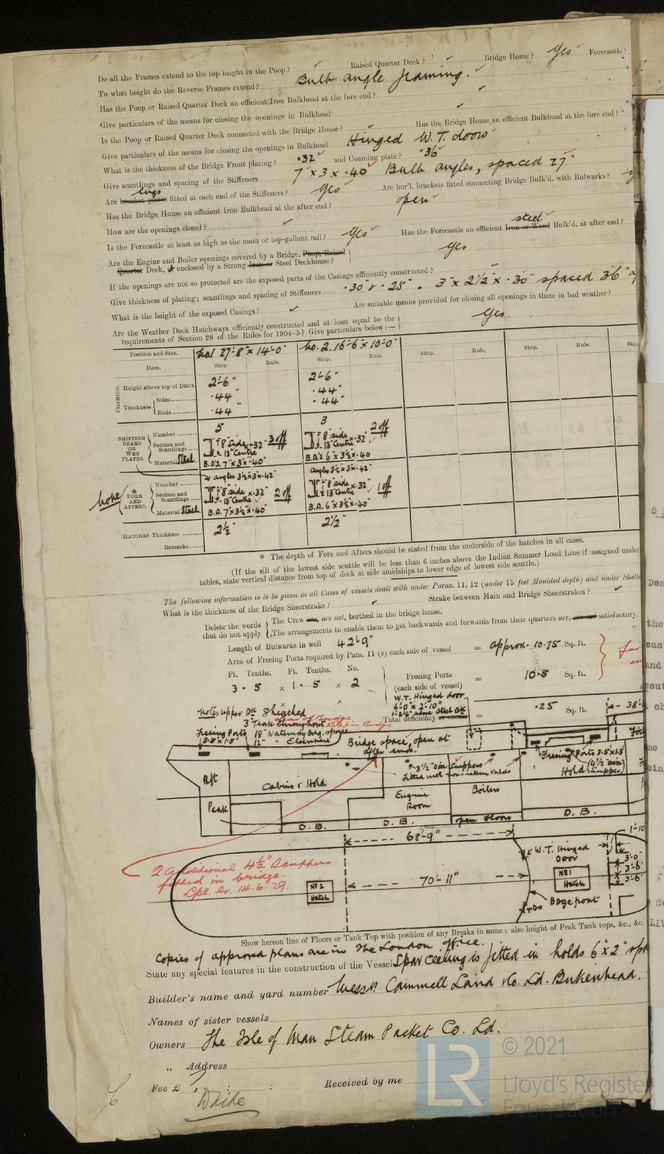 Do all the Frames extend to the top height in the Poop? Raised Quarter Deck? Bridge House? Yes Forecastle?
To what height do the Reverse Frames extend? Bulb angle framing.
Has the Poop or Raised Quarter Deck an efficient Iron Bulkhead at the fore end?
Give particulars of the means for closing the openings in Bulkhead
Is the Poop or Raised Quarter Deck connected with the Bridge House? Has the Bridge House an efficient Bulkhead at the fore end?
Give particulars of the means for closing the openings in Bulkhead Hinged W.T. doors
What is the thickness of the Bridge Front plating? .32 and Coaming plate? .36
Give scantlings and spacing of the Stiffeners 7 x 3 x .40 Bulb angles, spaced 27"
Are bracket plates lugs fitted at each end of the Stiffeners? Yes Are hor'l. brackets fitted connecting Bridge Bulk'd. with Bulwarks?
Has the Bridge House an efficient Iron Bulkhead at the after end? open
How are the openings closed?
Is the Forecastle at least as high as the main or top-gallant rail? Yes Has the Forecastle an efficient steel Iron or Wood Bulk'd. at after end?
Are the Engine and Boiler openings covered by a Bridge, Poop, Raised
Quarter Deck, or enclosed by a Strong Iron or Steel Deckhouse? Yes
If the openings are not so protected are the exposed parts of the Casings efficiently constructed?
Give thickness of plating; scantlings and spacing of Stiffeners .30 & .28 - 3" x 2½" x .30 spaced 36"
What is the height of the exposed Casings? Are suitable means provided for closing all openings in them in bad weather?
Are the Weather Deck Hatchways efficiently constructed and at least equal to the
requirements of Section 28 of the Rules for 1904-5? Give particulars below:— Yes.
Position and Size. No 1 27'-8" x 14'-0" No. 2. 16'-6" x 10'-0"
Item. Ship. Rule. Ship. Rule. Ship. Rule. Ship. Rule. Ship
COAMING. Height above top of DECK 2'-6" 2'-6"
Thickness Sides .44 .44"
Ends .44 .44"
SHIFTING BEAMS OR WEB PLATES. Number 5 3
Section and Scantlings 8" side x .32" 13" Centre 3 off 8" side x .32 13" Centre 2 off
Material Steel B.A's. 7" x 3" x .40" B.A's 6" x 3½" x .40
FORE AND AFTERS. Number angles 3½" x 3" x .42" angles 3½" x 3" x .42"
none Section and Scantlings 8" side x .32 13" Centre 2 off 8" side x .32 13" Centre 1 off
Material Steel B.A. 7" x 3" x .40 B.A. 6" x 3½" x .40
HATCHES Thickness 2½" 2½"
Remarks
* The depth of Fore and Afters should be stated from the underside of the hatches in all cases.
(If the sill of the lowest side scuttle will be less than 6 inches above the Indian Summer Load Line if assigned under
tables, state vertical distance from top of deck at side amidships to lower edge of lowest side scuttle.)
The following information is to be given in all Cases of vessels dealt with under Paras. 11, 12 (under 15 feet Moulded depth) and under Shelter
What is the thickness of the Bridge Sheerstrake? Strake between Main and Bridge Sheerstrakes?
Delete the words that do not apply The Crew are, are not, berthed in the bridge house.
The arrangements to enable them to get backwards and forwards from their quarters are, satisfactory.
Length of Bulwarks in well 42'-9"
Area of Freeing Ports required by Para. 11 (e) each side of vessel = approx. 10.75 Sq. ft.
Ft. Tenths. Ft. Tenths. No.
3 . 5 x 1 . 5 x 2 Freeing Ports (each side of vessel) = 10.5 Sq. ft.
W.T. Hinged door
Total deficiency = .25 Sq. ft.
Note: Upper Dk Sheathed
3" Teak throughout
Freeing Ports 3.5 x 1.5
Bridge space, open at after end.
Freeing Ports 3.5 x 1.5
Aft Peak Cabins & Hold Engine Room Boilers Hold
D.B. D.B. open floors D.B.
68'-9"
70'-11"
W.T. Hinged Door
No 2 Hatch No 1 Hatch
2 additional 4½" scuppers
fitted on bridge.
Lpl. Lr. 14.6.29.
Show hereon line of Floors or Tank Top with position of any Breaks in same; also height of Peak Tank tops, &c., &c.
Copies of approved plans are in the London office.
State any special features in the construction of the Vessel Spar ceiling is fitted in holds 6" x 2"
Builder's name and yard number Messrs Cammell Laird & Co. Ld. Birkenhead.
Names of sister vessels
Owners The Isle of Man Steam Packet Co. Ld.
" Address
Fee £ : : Received by me
© 2021
LR
Lloyd's Register
Foundation